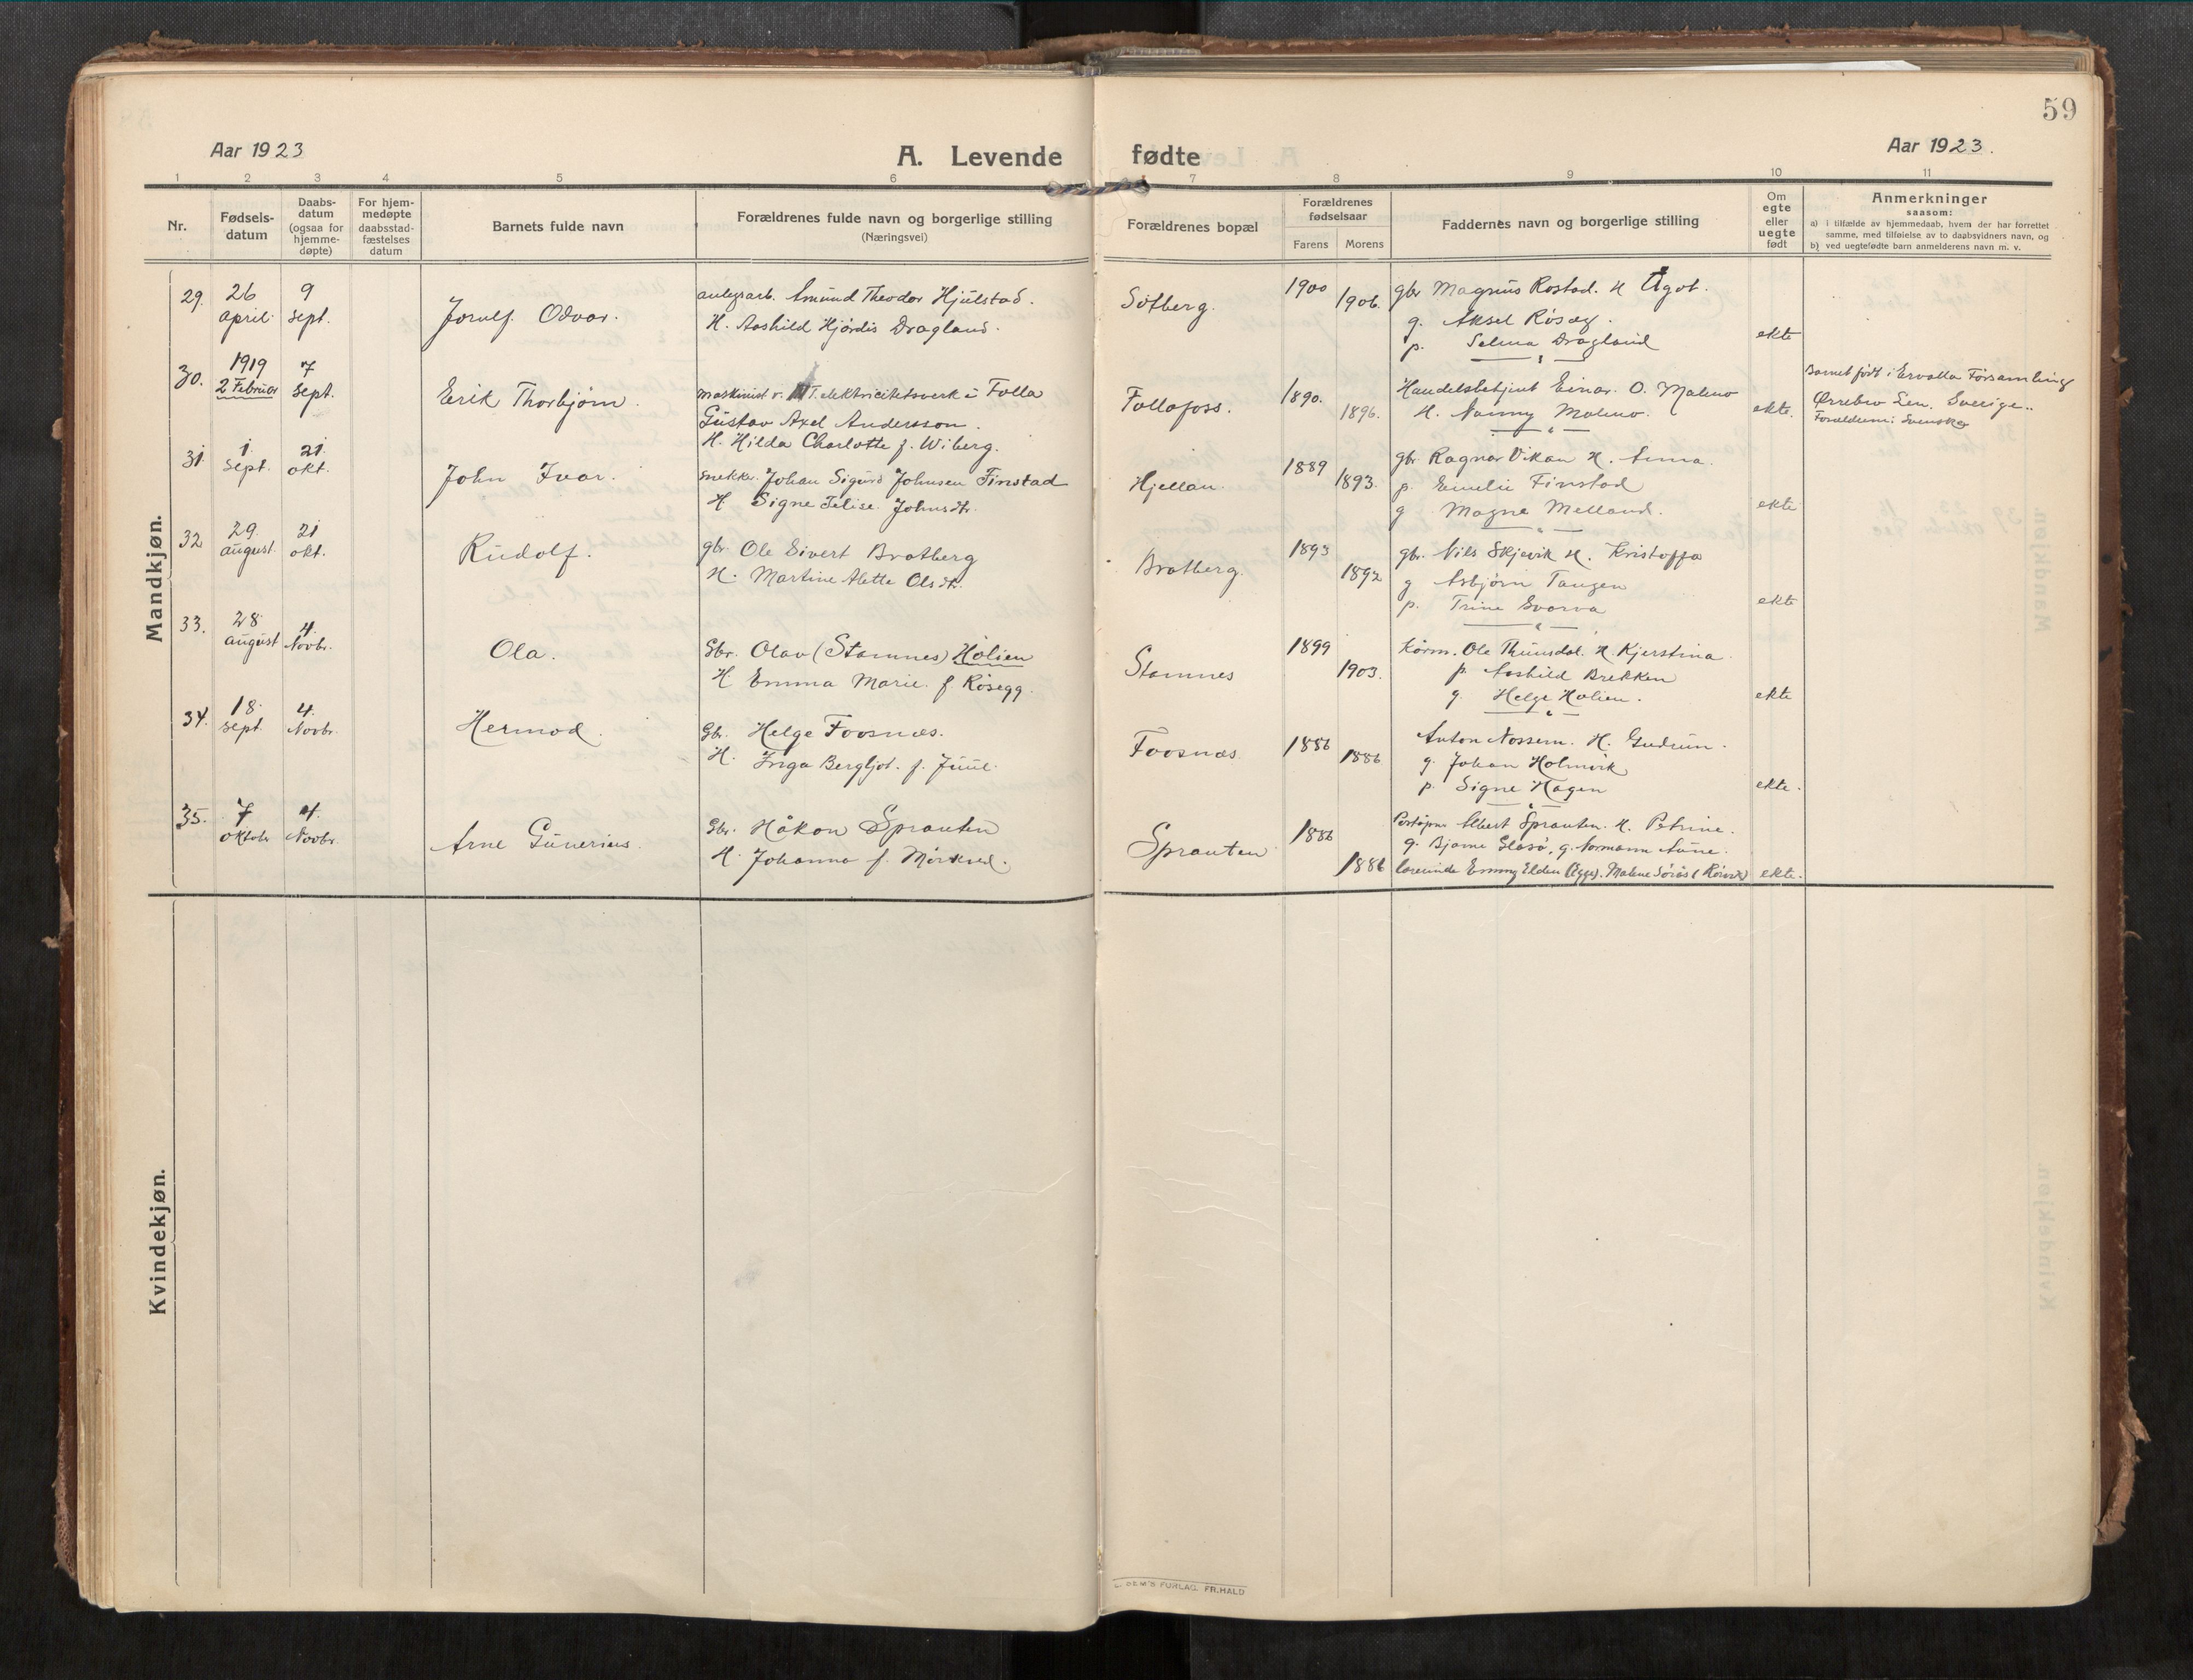 59
Aar 1923
A. Levende fødte
Aar 1923.
1 2 3 4 5 6 7 8 9 10 11
Nr.
Fødsels-
datum
Daabs-
datum
(ogsaa for
hjemme-
døpte)
For hjem-
medøpte
daabsstad-
fæstelses
datum
Barnets fulde navn
Forældrenes fulde navn og borgerlige stilling
(Næringsvei)
Forældrenes bopæl
Forældrenes
fødselsaar
Farens Morens
Faddernes navn og borgerlige stilling
Om
egte
eller
uegte
født
Anmerkninger
saasom:
a) i tilfælde av hjemmedaab, hvem der har forrettet
samme, med tilføielse av to daabsvidners navn, og
b) ved uegtefødte barn anmelderens navn m. v.
Mandkjøn.
29. 26 april. 9 sept. Jorulf Odvar.
anlegsarb. Amund Theodor Hjulstad.
H. Aashild Hjørdis Dragland.
Solberg. 1900 1906.
gbr Magnus Rostad. H Ågot.
g. Aksel Røseg.
p. Selma Dragland
ekte
30. 1919 2 Februar 7 sept. Erik Thorbjørn.
maskinist v. N.T. elektricitetsverk i Folla
Gustav Axel Andersson.
H. Hilda Charlotte f. Wiberg.
Follafoss. 1890. 1896.
Handelsbetjent Einar. O. Malmo
H. Nanny Malmo.
ekte.
Barnet født i Ervalla Forsamling
Ørrebro Len. Sverige..
Forældrene Svenske
31. 1. sept. 21. okt. John Ivar.
snekkr. Johan Sigurd Johnsen Finstad
H Signe Johnsdtr.
Hjellan. 1889 1893.
gbr Ragnar Vikan H. Anna.
p. Emelie Finstad
g Magne Melland.
ekte
32 29. august. 21 okt. Rudolf.
gbr. Ole Sivert Bratberg
H. Martine Alette Olsdtr.
Bratberg. 1893 1892
gbr. Nils Skjevik H. Kristoffa
g Asbjørn Tangen
p. Trine Svarva
ekte
33. 28. august 4. Novbr. Ola.
Gbr. Olav (Stamnes) Holien
H Emma Marie. f. Røsegg.
Stamnes 1899 1903.
Lærm. Ole Thunsdal. H. Kjerstina.
p. Aashild Brekken
g. Helge Holien.
ekte
34. 18. sept. 4. Novbr. Hermod.
Gbr. Helge Foosnæs.
H. Friga Bergljot. f. Juul.
Foosnæs 1886 1886
Anton Nossem. H. Gudrun.
g. Johan Holmvik
p. Signe Hagen
ekte.
35. 7 Oktobr 4. Novbr. Arne Gunerius.
Gbr. Håkon Sprauten
H. Johanna f. Mørkved.
Sprauten 1886 1886
Poståpner Albert Sprauten. H. Petrine.
g. Bjarne Glåsø, g. Normann Aune.
lærerinde Emmy Elden (Egge). Malene Sørås (Rørvik)
ekte.
Kvindekjøn.
FORLAG. FR.HALD